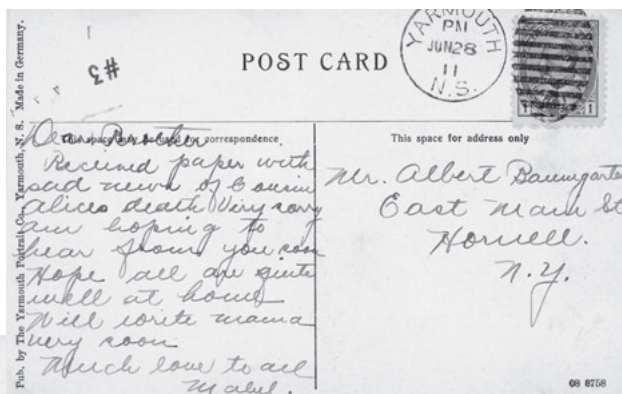 Pub. by The Yarmouth Portrait Co., Yarmouth, N. S. Made in Germany.
#3
POST CARD
YARMOUTH
PM
JUN 28
11
N.S.
1 1
This space may be used for correspondence
This space for address only
Dear Brother
Received paper with
sad news of Cousin
Alices death Very sorry
am hoping to
hear from you soon
Hope all are quite
well at home
Will write mama
very soon
Much love to all
Mabel.
Mr. Albert Baumgarten
East Main St
Hornell.
N.Y.
08 8758